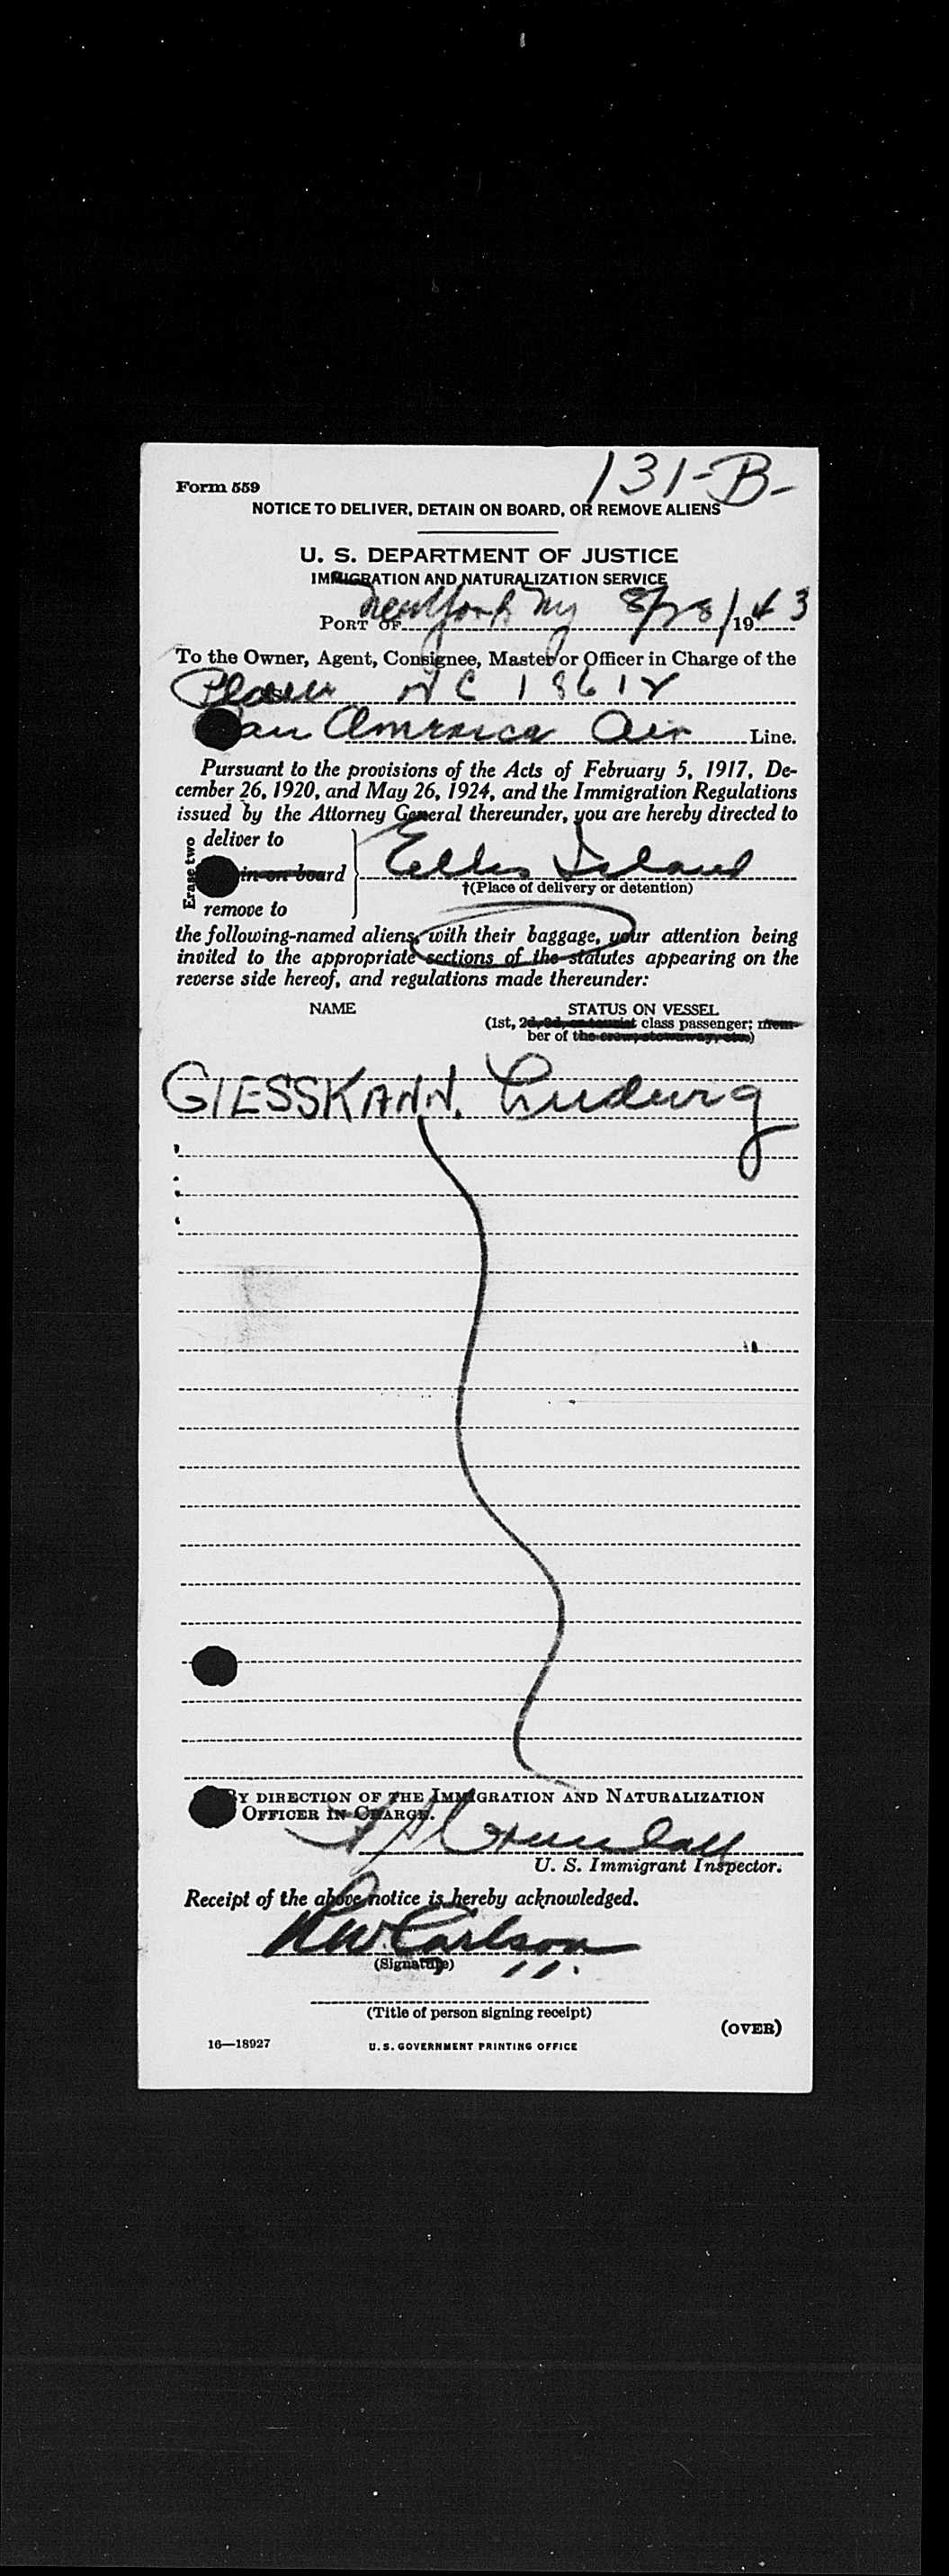 131-B-
Form 559
NOTICE TO DELIVER, DETAIN ON BOARD, OR REMOVE ALIENS
U. S. DEPARTMENT OF JUSTICE
IMMIGRATION AND NATURALIZATION SERVICE
PORT OF New York NY 8/28/1943
To the Owner, Agent, Consignee, Master or Officer in Charge of the
NC 18612
an America Air Line.
Pursuant to the provisions of the Acts of February 5, 1917, De-
cember 26, 1920, and May 26, 1924, and the Immigration Regulations
issued by the Attorney General thereunder, you are hereby directed to
Erase two
deliver to
in on board
remove to
Ellis Island
†(Place of delivery or detention)
the following-named aliens, with their baggage, your attention being
invited to the appropriate sections of the statutes appearing on the
reverse side hereof, and regulations made thereunder:
NAME STATUS ON VESSEL
(1st, 2d, 3d, or tourist class passenger; mem-
ber of the crew, stowaway, etc.)
GIESSKANN, Ludwig
BY DIRECTION OF THE IMMIGRATION AND NATURALIZATION
OFFICER IN CHARGE.
Crundall
U. S. Immigrant Inspector.
Receipt of the above notice is hereby acknowledged.
RW Carlson
(Signature)
(Title of person signing receipt)
(OVER)
16—18927 U. S. GOVERNMENT PRINTING OFFICE